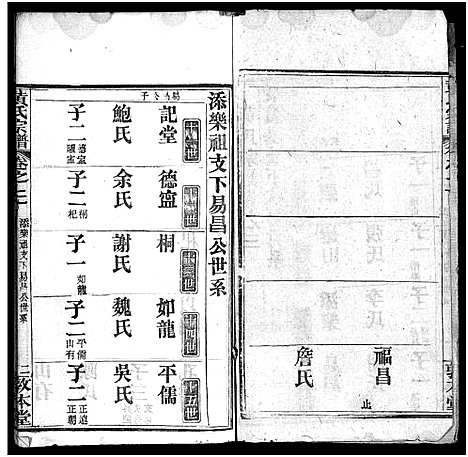 福昌
止
詹氏
添樂祖支下易昌公世系
十一世
記堂
鮑氏
子二
德寍
德寍
余氏
子二
桐
杞
桐
謝氏
子一
如龍
十四世
如龍
魏氏
子二
平儒
山有
十五世
平儒
吳氏
子二
正遠
正朝
黃氏宗譜
卷之二
添樂祖支下易昌公世系
敦本堂